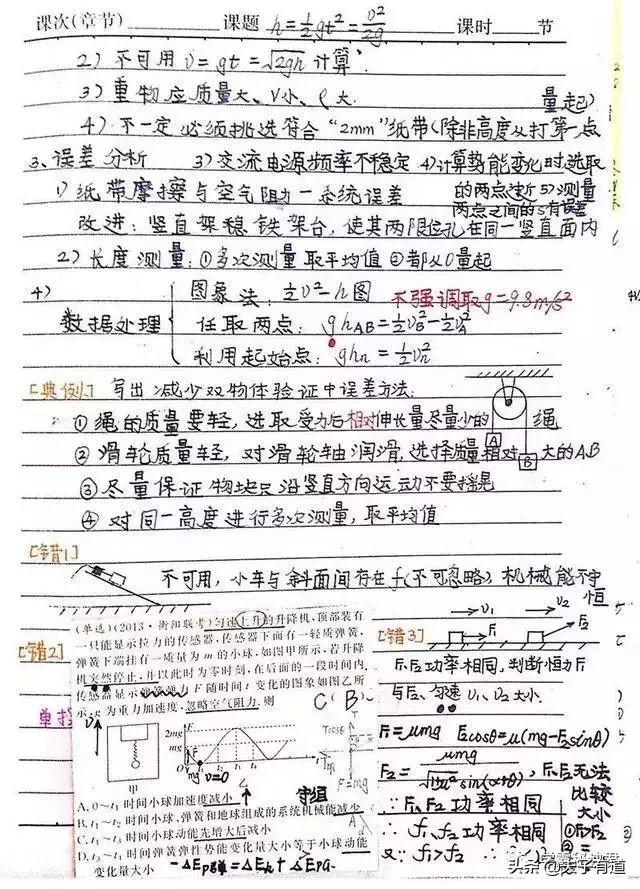 课次(章节) 课题 h=½gt²=v²/2g 课时 节
2) 不可用 v=gt=√2gh 计算
3) 重物应质量大、V小、ρ大. 量起)
4) 不一定必须挑选符合“2mm”纸带(除非高度从打第一点
3、误差分析 3)交流电源频率不稳定 4)计算势能变化时,选取
1) 纸带摩擦与空气阻力—系统误差 的两点过近 5)测量
两点之间的S有误差
改进:竖直架稳铁架台,使其两限位孔在同一竖直面内
2) 长度测量:①多次测量取平均值 ②都从0量起
4)
图象法:½v²-h图 不强调取g=9.8m/s²
数据处理 任取两点:ghAB=½vB²-½vA²
利用起始点:ghn=½vn²
[典例] 写出减少双物体验证中误差方法:
①绳的质量要轻,选取受力后相对伸长量尽量少的 绳
A
B
②滑轮质量轻,对滑轮轴润滑,选择质量相对大的AB
③尽量保证物块只沿竖直方向运动不要摇晃
④对同一高度进行多次测量,取平均值
[错1]
不可用,小车与斜面间存在f(不可忽略)机械能不守
恒
[错2]
(单选)(2013·衡阳联考)匀速上升的升降机,顶部装有
一只能显示拉力的传感器,传感器下面有一轻质弹簧,
弹簧下端挂有一质量为m的小球,如图甲所示,若升降
机突然停止,并以此时为零时刻,在后面的一段时间内,
传感器显示弹簧弹力F随时间t变化的图象如图乙所
示,g为重力加速度,忽略空气阻力,则 C(B)
v
F
2mg
mg
t₁ t₂ t₃ t₄
mg v=0
甲 乙
Tcosθ
F=mg
守恒
A. 0~t₁时间小球加速度减小
B. t₁~t₂时间小球、弹簧和地球组成的系统机械能减少
C. t₁~t₃时间小球动能先增大后减小
D. t₃~t₄时间弹簧弹性势能变化量大小等于小球动能
变化量大小 -ΔEp弹=ΔEk+ΔEpG.
[错3]
v₁ v₂
F₁ F₂
F₁、F₂功率相同,判断恒力F₁
与F₂、匀速v₁、v₂大小.
F₁=μmg F₂cosθ=μ(mg-F₂sinθ)
F₂=μmg/√1+μ²sin(α+θ),F₁、F₂无法
比较
大小
∵F₁、F₂功率相同
∴f₁、f₂功率相同 ①F₁>F₂
又∵f₁>f₂
头条@段宇有道